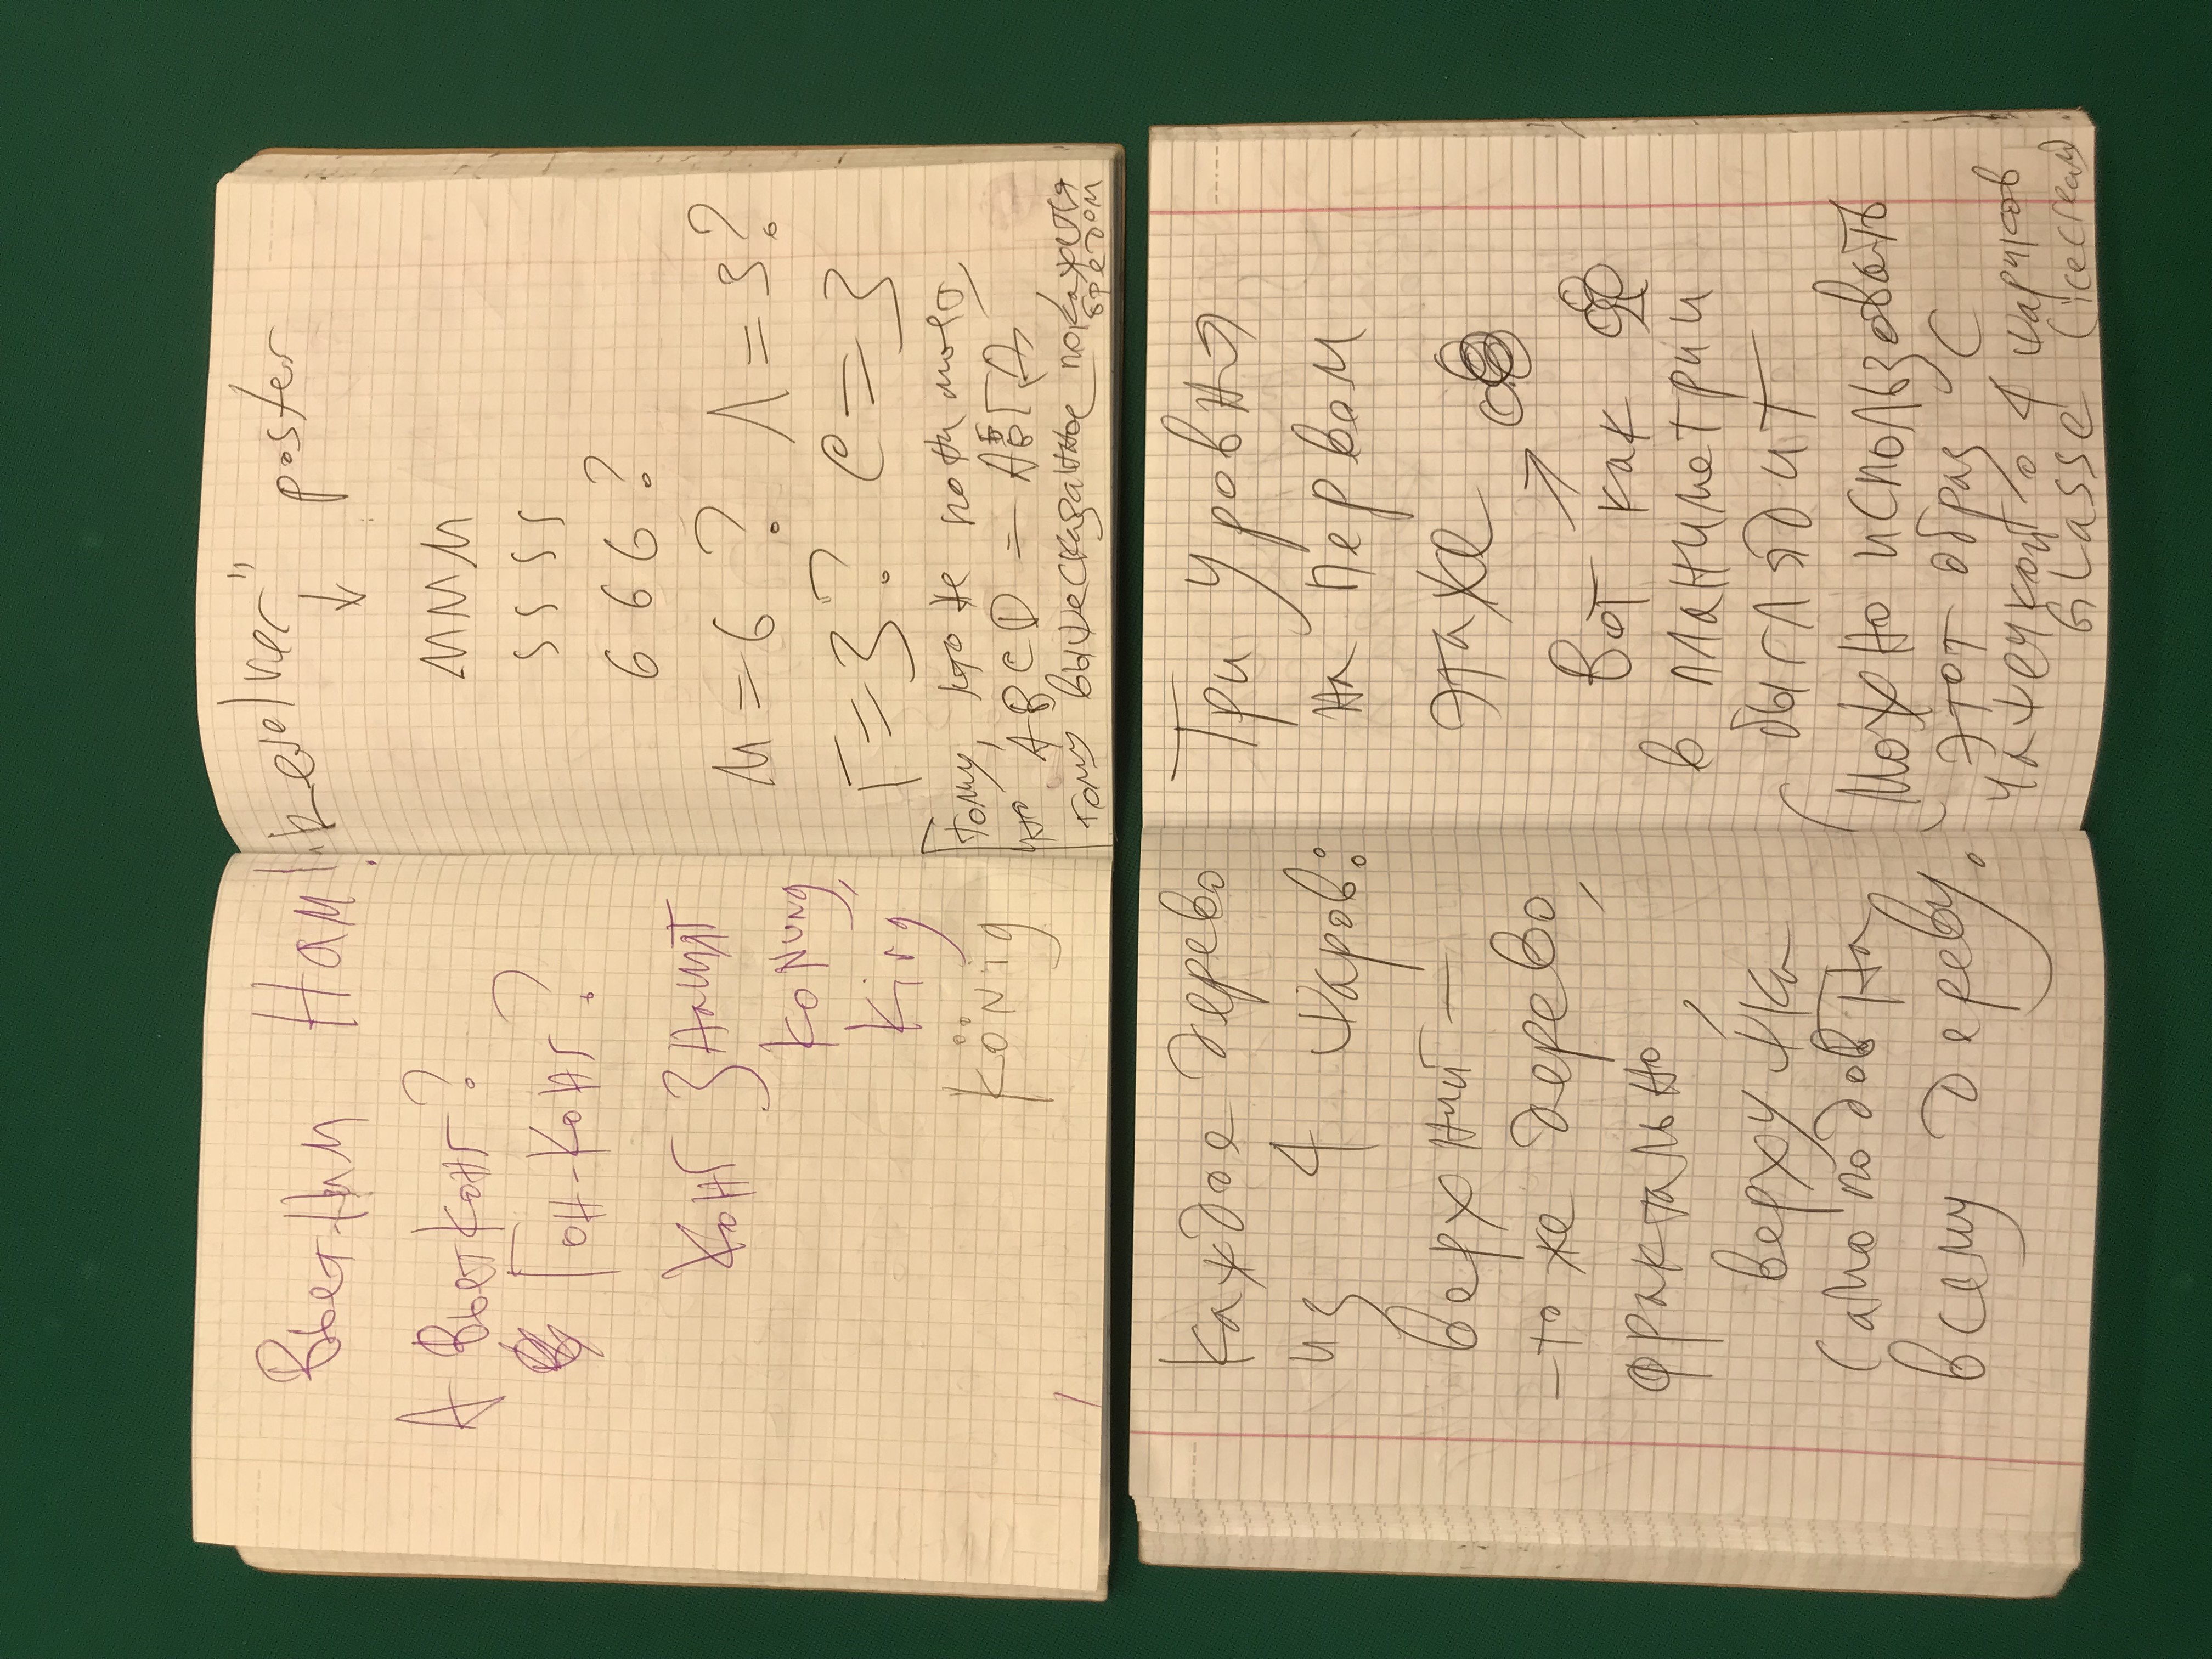 Вьет-Ним Нам!
А Вьетконг?
Гон-Конг?
Конг значит
KoNung,
King
KöNig
"Revolver" poster
↓
МММ
S S S S
6 6 6 ?
М = 6 ? Λ = 3 ?
Г = 3 ? C = 3
Тому, кто не понимает,
что ABCD = АБВГД,
тому вышесказанное покажется
бредом
Каждое дерево
из 4 шаров:
верхний —
— то же дерево,
фрактально,
верхушка
самоподобна
всему дереву.
Три уровня
на первом
этаже
Вот как
в планиметрии
выглядит
(Можно использовать
этот образ с
чашечкой о 4 шариков
GLasse (icecream)